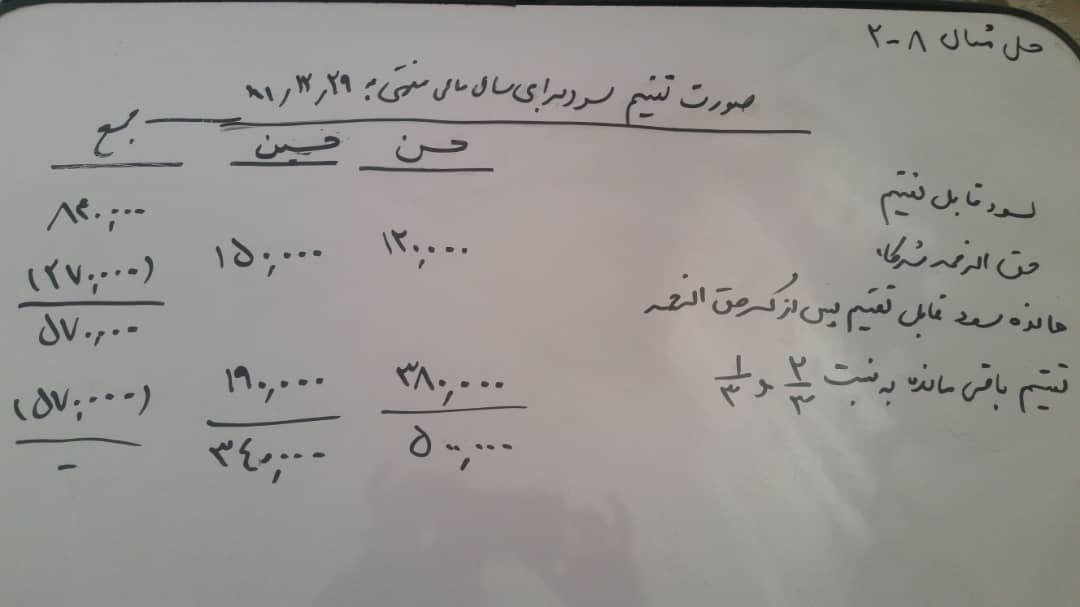 حل مثال ۸-۲
صورت تقسیم سود برای سال مالی منتهی به ۸۱٫۱۲٫۲۹
حسن حسین جمع
سود قابل تقسیم ۸۴۰٫۰۰۰
حق الزحمه شرکاء ۱۲۰٫۰۰۰ ۱۵۰٫۰۰۰ (۲۷۰٫۰۰۰)
مانده سود قابل تقسیم پس از کسر حق الزحمه ۵۷۰٫۰۰۰
تقسیم باقی مانده به نسبت ۲/۳ و ۱/۳ ۳۸۰٫۰۰۰ ۱۹۰٫۰۰۰ (۵۷۰٫۰۰۰)
۵۰۰٫۰۰۰ ۳۴۰٫۰۰۰ -